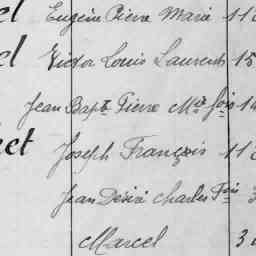 el Eugène Pierre Marie 11
el Victor Louis Laurent 15
Jean Bapte Pierre Mie Jois 1
het Joseph François 11
Jean Désiré Charles Fois 3
Marcel 3